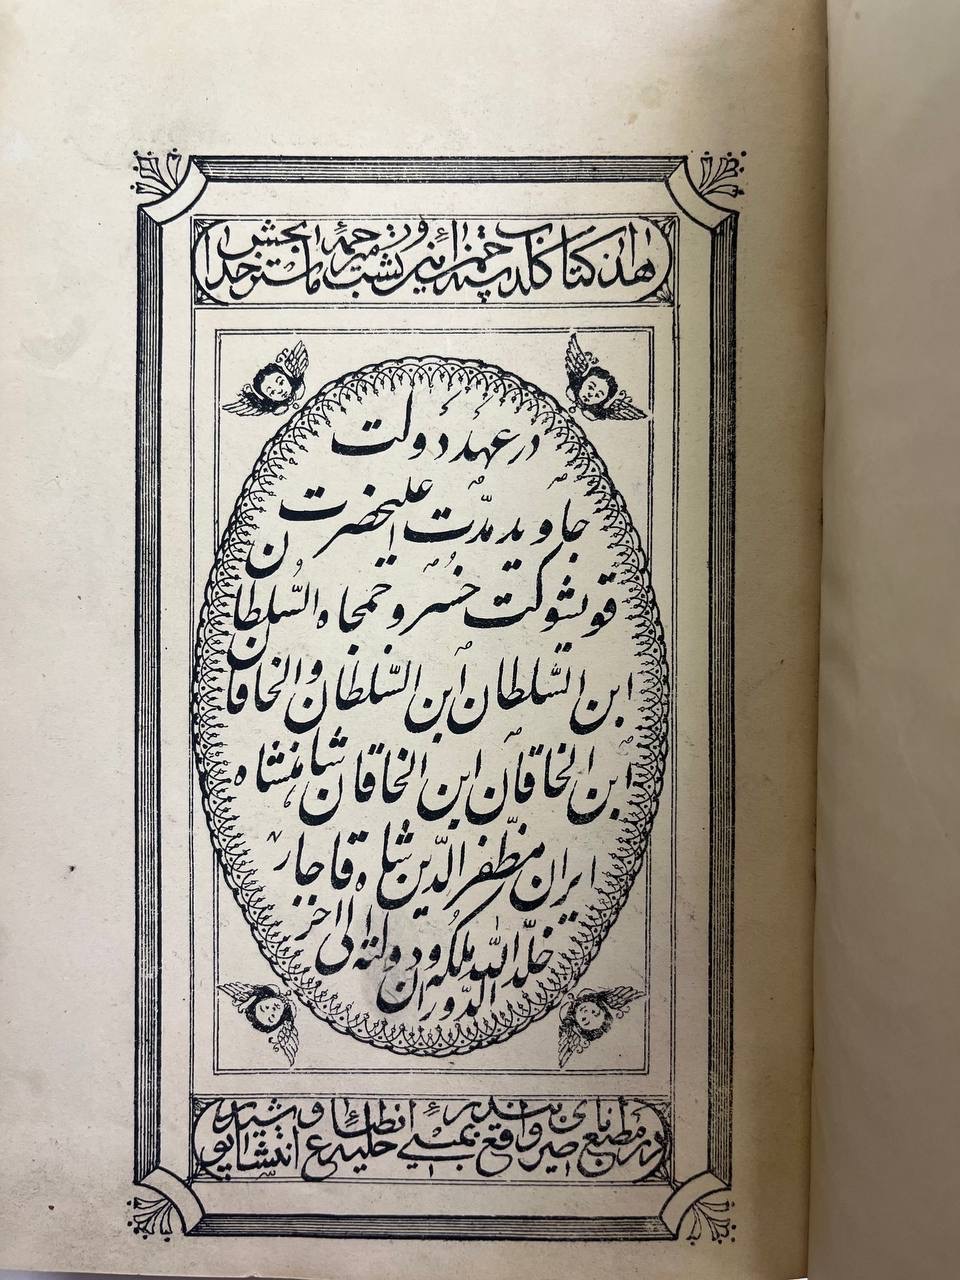 هذا کتاب کلدسته چمن آئین زرتشت من ترجمه ماستر خدابخش
در عهد دولت
جاوید مدّت اعلیحضرت
قویشوکت خسرو جمجاه السّلطان
ابن السّلطان ابن السّلطان والخاقان
ابن الخاقان ابن الخاقان شاهنشاه
ایران مظفّر الدّین شاه قاجار
خلّد اللّه ملکه و دولته الی اخر
الدّوران
در مطبع ناصری واقع بندر بمبئی حلیه انطباع و انتشار پوشید